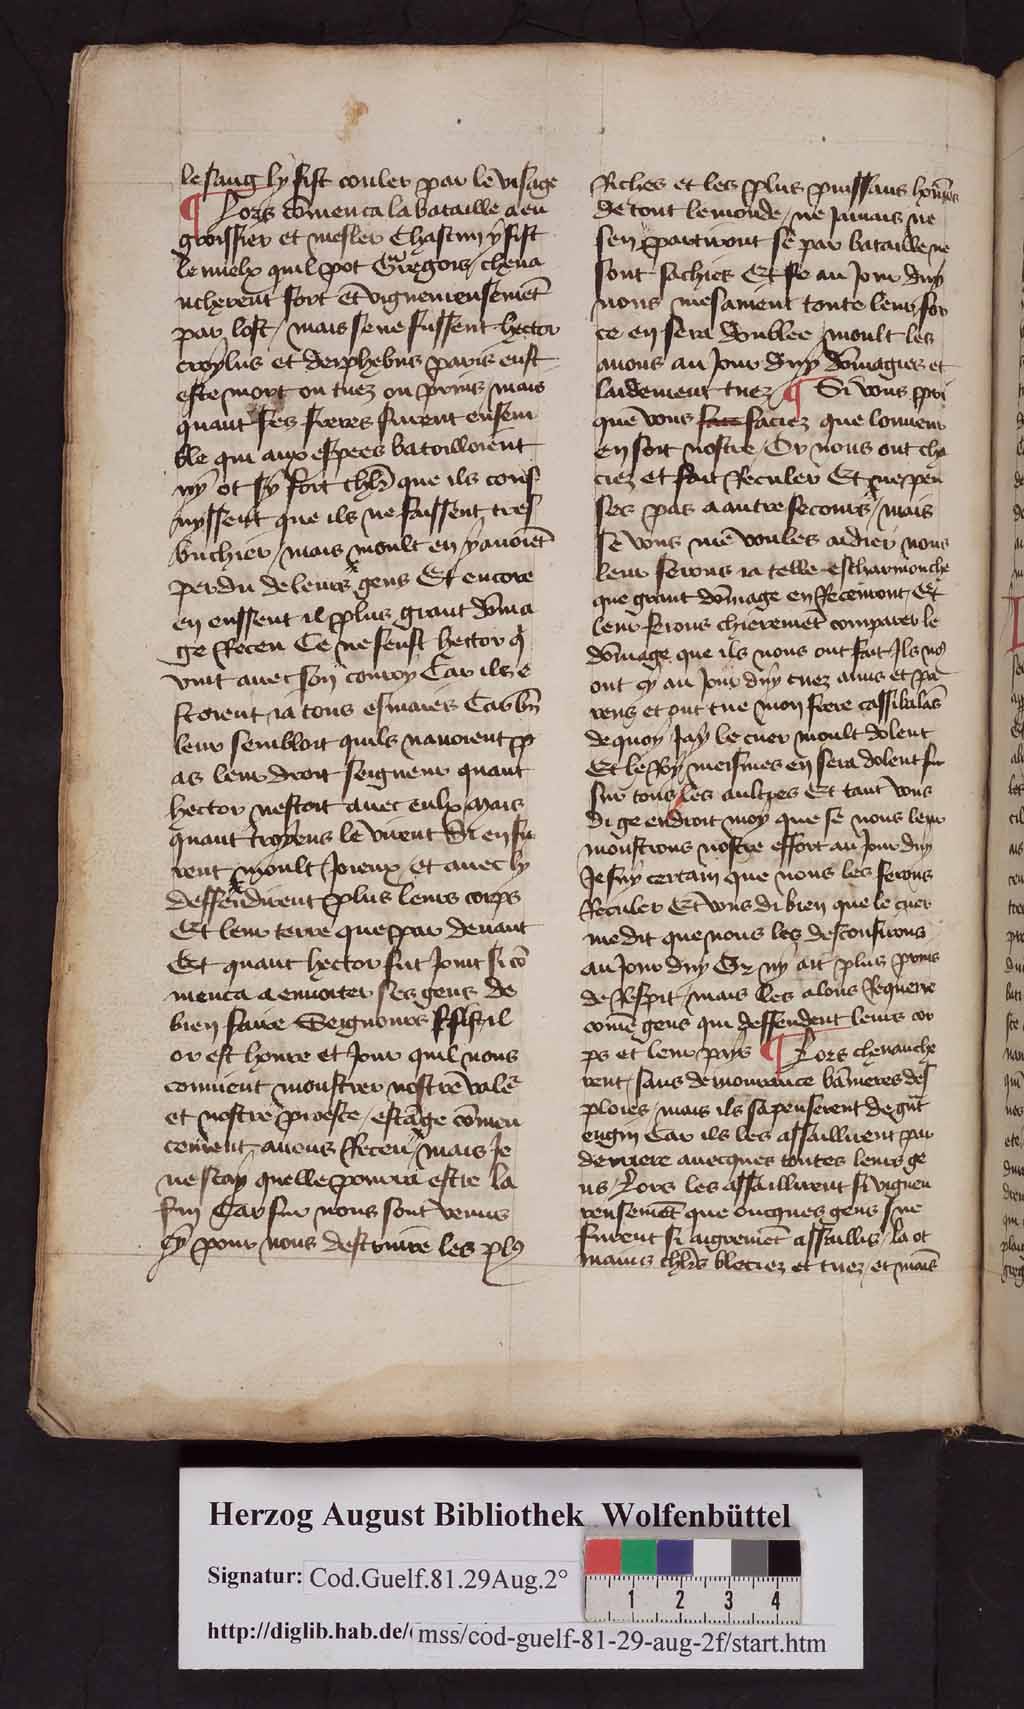 le sang ly fist couler par le visage
¶ Lors cōmenca la bataille a en
groissier et mesler Chascun y fist
le mielx quil pot Gregois / cheua
ucherent fort et vigueureusemēt
par lost / mais se ne fussent hector
troylus et deyphebus paris eust
este mort ou tuez ou prins mais
quant ses freres furent ensem
ble qui aux espees batoilloient
ny ot sy fort chlr̄ que ils conss
uyssent que ils ne faissent tres
buchier / mais moult en y auoiēt
perdu de leurs gens Et encore
en eussent il plus grant dōma
ge Receu Ce ne feust hector q̄
vint auec son conroy Car ils e
stoient ia tous esmaies Car bn̄
leur sembloit quils nauoient p
as leur droit seigneur quant
hector nestoit auec eulx Mais
quant troyens le virent Si en fu
rent moult Joieux et auec ly
deffendirent plus leurs corps
Et leur terre que par deuant
Et quant hector fut Joint si cō
menca a enuoiter ses gens de
bien faire Seigneurs fist il
or est heure et Jour quil nous
conuient monstrer nostre vale
et nostre proesce / estāge cōmen
cement auons Receu / mais Je
ne scay quelle pourra estre la
fin Car sur nous sont venus
cy pour nous destruire les plꝰ
Riches et les plus puissans hōmes
de tout le monde / ne Jamais ne
sen partiront se par bataille ne
sont sachies Et se au Jour duy
nous mesament toute leur for
ce en sera doublee / moult les
auons au Jour duy dōmagies et
laidement tuez ¶ Si vous pri
que vous faciez que lonneur
en soit nostre / Or nous ont cha
ciez et fait Reculer Et ne pen
ses pas a autre secours / mais
se vous me voules aidier nous
leur ferons ia telle escharmouche
que grant dōmage en Receuront Et
leur ferons chieremēt comparer le
dōmage que ils nous ont fait Ils noꝰ
ont cy au Jour duy tuez amis et pa
rens et ont tue mon frere cassibilās
de quoy Jay le cuer moult dolent
Et le Roy meismes en sera dolent sur
sur tous les aultres Et tant vous
di ge endroit moy que se nous leur
monstrons nostre effort au Jour duy
Je suy certain que nous les ferons
Reculer Et vous di bien que le cuer
me dit que nous les desconfirons
au Jour duy Or ny ait plus prins
de Respit / mais les alons Requerre
comē gens qui deffendent leurs cor
ps et leur pays ¶ Lors cheuauche
rent / sans demourance bānieres des
ploies / mais ils sapenserent de gūt
engin Car ils les assaillirent par
derriere auecques toutes leurs ge
ns / Lors les assaillirent si vigueu
reusemēt que oncques gens ne
furent si aigremēt assaillis / la ot
mains chlrs̄ bleciez et tuez / et mais
Herzog August Bibliothek Wolfenbüttel
Signatur: Cod.Guelf.81.29Aug.2°
1 2 3 4
http://diglib.hab.de/ mss/cod-guelf-81-29-aug-2f/start.htm